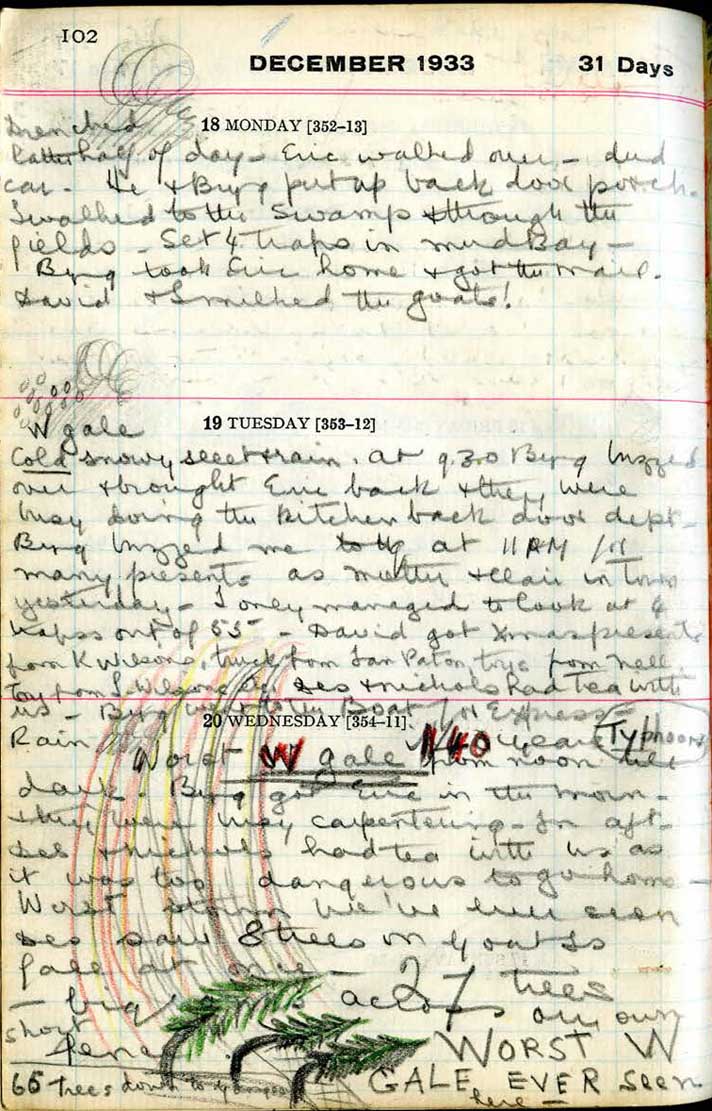 102
DECEMBER 1933 31 Days
18 MONDAY [352-13]
Drenched
latter half of day - Eric walked over - dud
car - He & Byng put up back door porch.
I walked to the Swamp & through the
fields - Set 4 traps in mud Bay -
Byng took Eric home & got the mail.
David & I milked the goats!
19 TUESDAY [353-12]
W gale
Cold snowy sleet & rain. At 9.30 Byng buzzed
over & brought Eric back & they were
busy doing the kitchen back door dept -
Byng buzzed me at 11 AM for
many presents as mother & Clair in Town
yesterday - I only managed to look at 4
traps out of 55 - David got Xmas presents
from K Wilsons, truck from Ian Paton, toys from Nell,
toy from L Wilsons Des & Nichols had tea with
us - Byng went to the Boat for Express -
20 WEDNESDAY [354-11]
Rain Worst W gale in 40 years (Typhoon)
from noon till
dark. Byng got Eric in the morn -
& they were busy carpentering - In aft -
Des & Nichols had tea with us as
it was too dangerous to go home -
Worst storm we've ever seen
Des saw 8 trees on Goat Is
fall at once - 27 trees
- big across our own
short fence
WORST W
GALE EVER seen
here -
65 trees down to